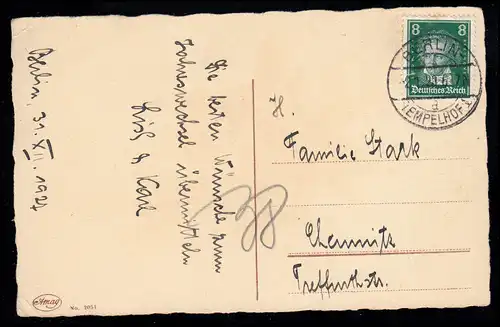 Berlin, 31. XII. 1927
Die besten Wünsche zum
Jahreswechsel übermitteln
Lisl & Karl
8 8
Deutsches Reich
BERLIN
TEMPELHOF 1
a
H.
Familie Stark
Chemnitz
Treffurthstr.
38
Amag
No. 2051